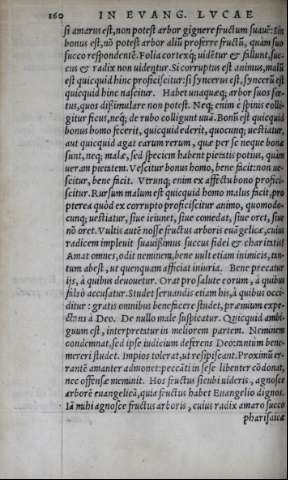 160 IN EVANG. LVCAE
si amarus est, non potest arbor gignere fructum suauē: Sin
bonus est, nō potest arbor aliū proferre fructū, quàm suo
succo respondentē. Folia cortexq; uidētur & fallunt, suc-
cus & radix non uidentur. Si corruptus est animus, malū
est quicquid hinc proficiscitur: si syncerus est, syncerū est
quicquid hinc nascitur. Habet unaquæq; arbor suos fœ-
tus, quos dissimulare non potest. Neq; enim è spinis colli-
gitur ficus, neq; de rubo colligunt uuā. Bonū est quicquid
bonus homo fecerit, quicquid ederit, quocunq; uestiatur,
aut quicquid agat earum rerum, quæ per se neque bonæ
sunt, neq; malæ, sed speciem habent pietatis potius, quàm
ueram pietatem. Vescitur bonus homo, bene facit: non ue-
scitur, bene facit. Vtrunq; enim ex affectu bono profici-
scitur. Rursum malum est quicquid homo malus facit, pro
pterea quòd ex corrupto proficiscitur animo, quomodo-
cunq; uestiatur, siue ieiunet, siue comedat, siue oret, siue
nō oret. Vultis autē nosse fructus arboris euāgelicæ, cuius
radicem impleuit suauissimus succus fidei & charitatis?
Amat omnes, odit neminem, bene uult etiam inimicis, tan-
tum abest, ut quenquam afficiat iniuria. Bene precatur
ijs, à quibus deuouetur. Orat pro salute eorum, à quibus
falsò accusatur. Studet seruandis etiam his, à quibus occi-
ditur: gratis omnibus benefacere studet, præmium expe-
ctans à Deo. De nullo male suspicatur. Quicquid ambi-
guum est, interpretatur in meliorem partem. Neminem
condemnat, sed ipse iudicium deferens Deo: tantùm bene-
mereri studet. Impios tolerat, ut resipiscant. Proximū er-
rantē amanter admonet: peccāti in sese libenter cōdonat,
nec offensæ meminit. Hos fructus sicubi uideris, agnosce
arborē euangelicā, quia fructus habet Euangelio dignos.
Iā mihi agnosce fructus arboris, cuius radix amaro succo
pharisaicæ